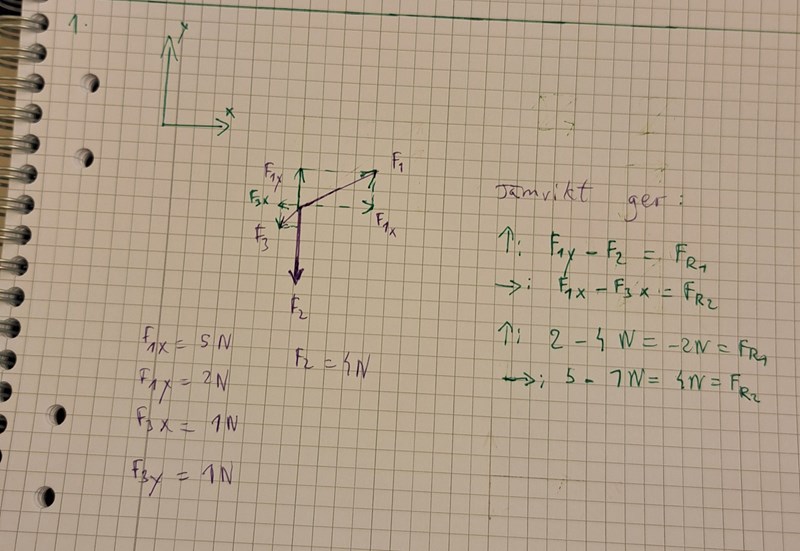 1.
y
x
F1y
F1
F3x
F3
F1x
F2
Jämvikt ger:
↑: F1y - F2 = FR1
→: F1x - F3x = FR2
↑: 2 - 4 N = -2N = FR1
→: 5 - 1N = 4N = FR2
F1x = 5N
F2 = 4N
F1y = 2N
F3x = 1N
F3y = 1N